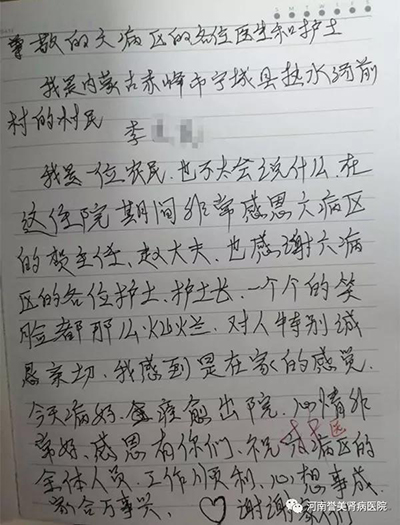 尊敬的六病区的各位医生和护士
我是内蒙古赤峰市宁城县热水汤前
村的村民 李
我是一位农民.也不太会说什么.在
这住院期间非常感恩六病区
的贺主任、赵大夫.也感谢六病
区的各位护士.护士长.一个个的笑
脸都那么灿烂.对人特别诚
恳亲切.我感到是在家的感觉.
今天病好.痊愈出院.心情非
常好.感恩有你们.祝六病区的
全体人员.工作顺利.心想事成
家合万事兴 ♡谢谢
河南誉美肾病医院